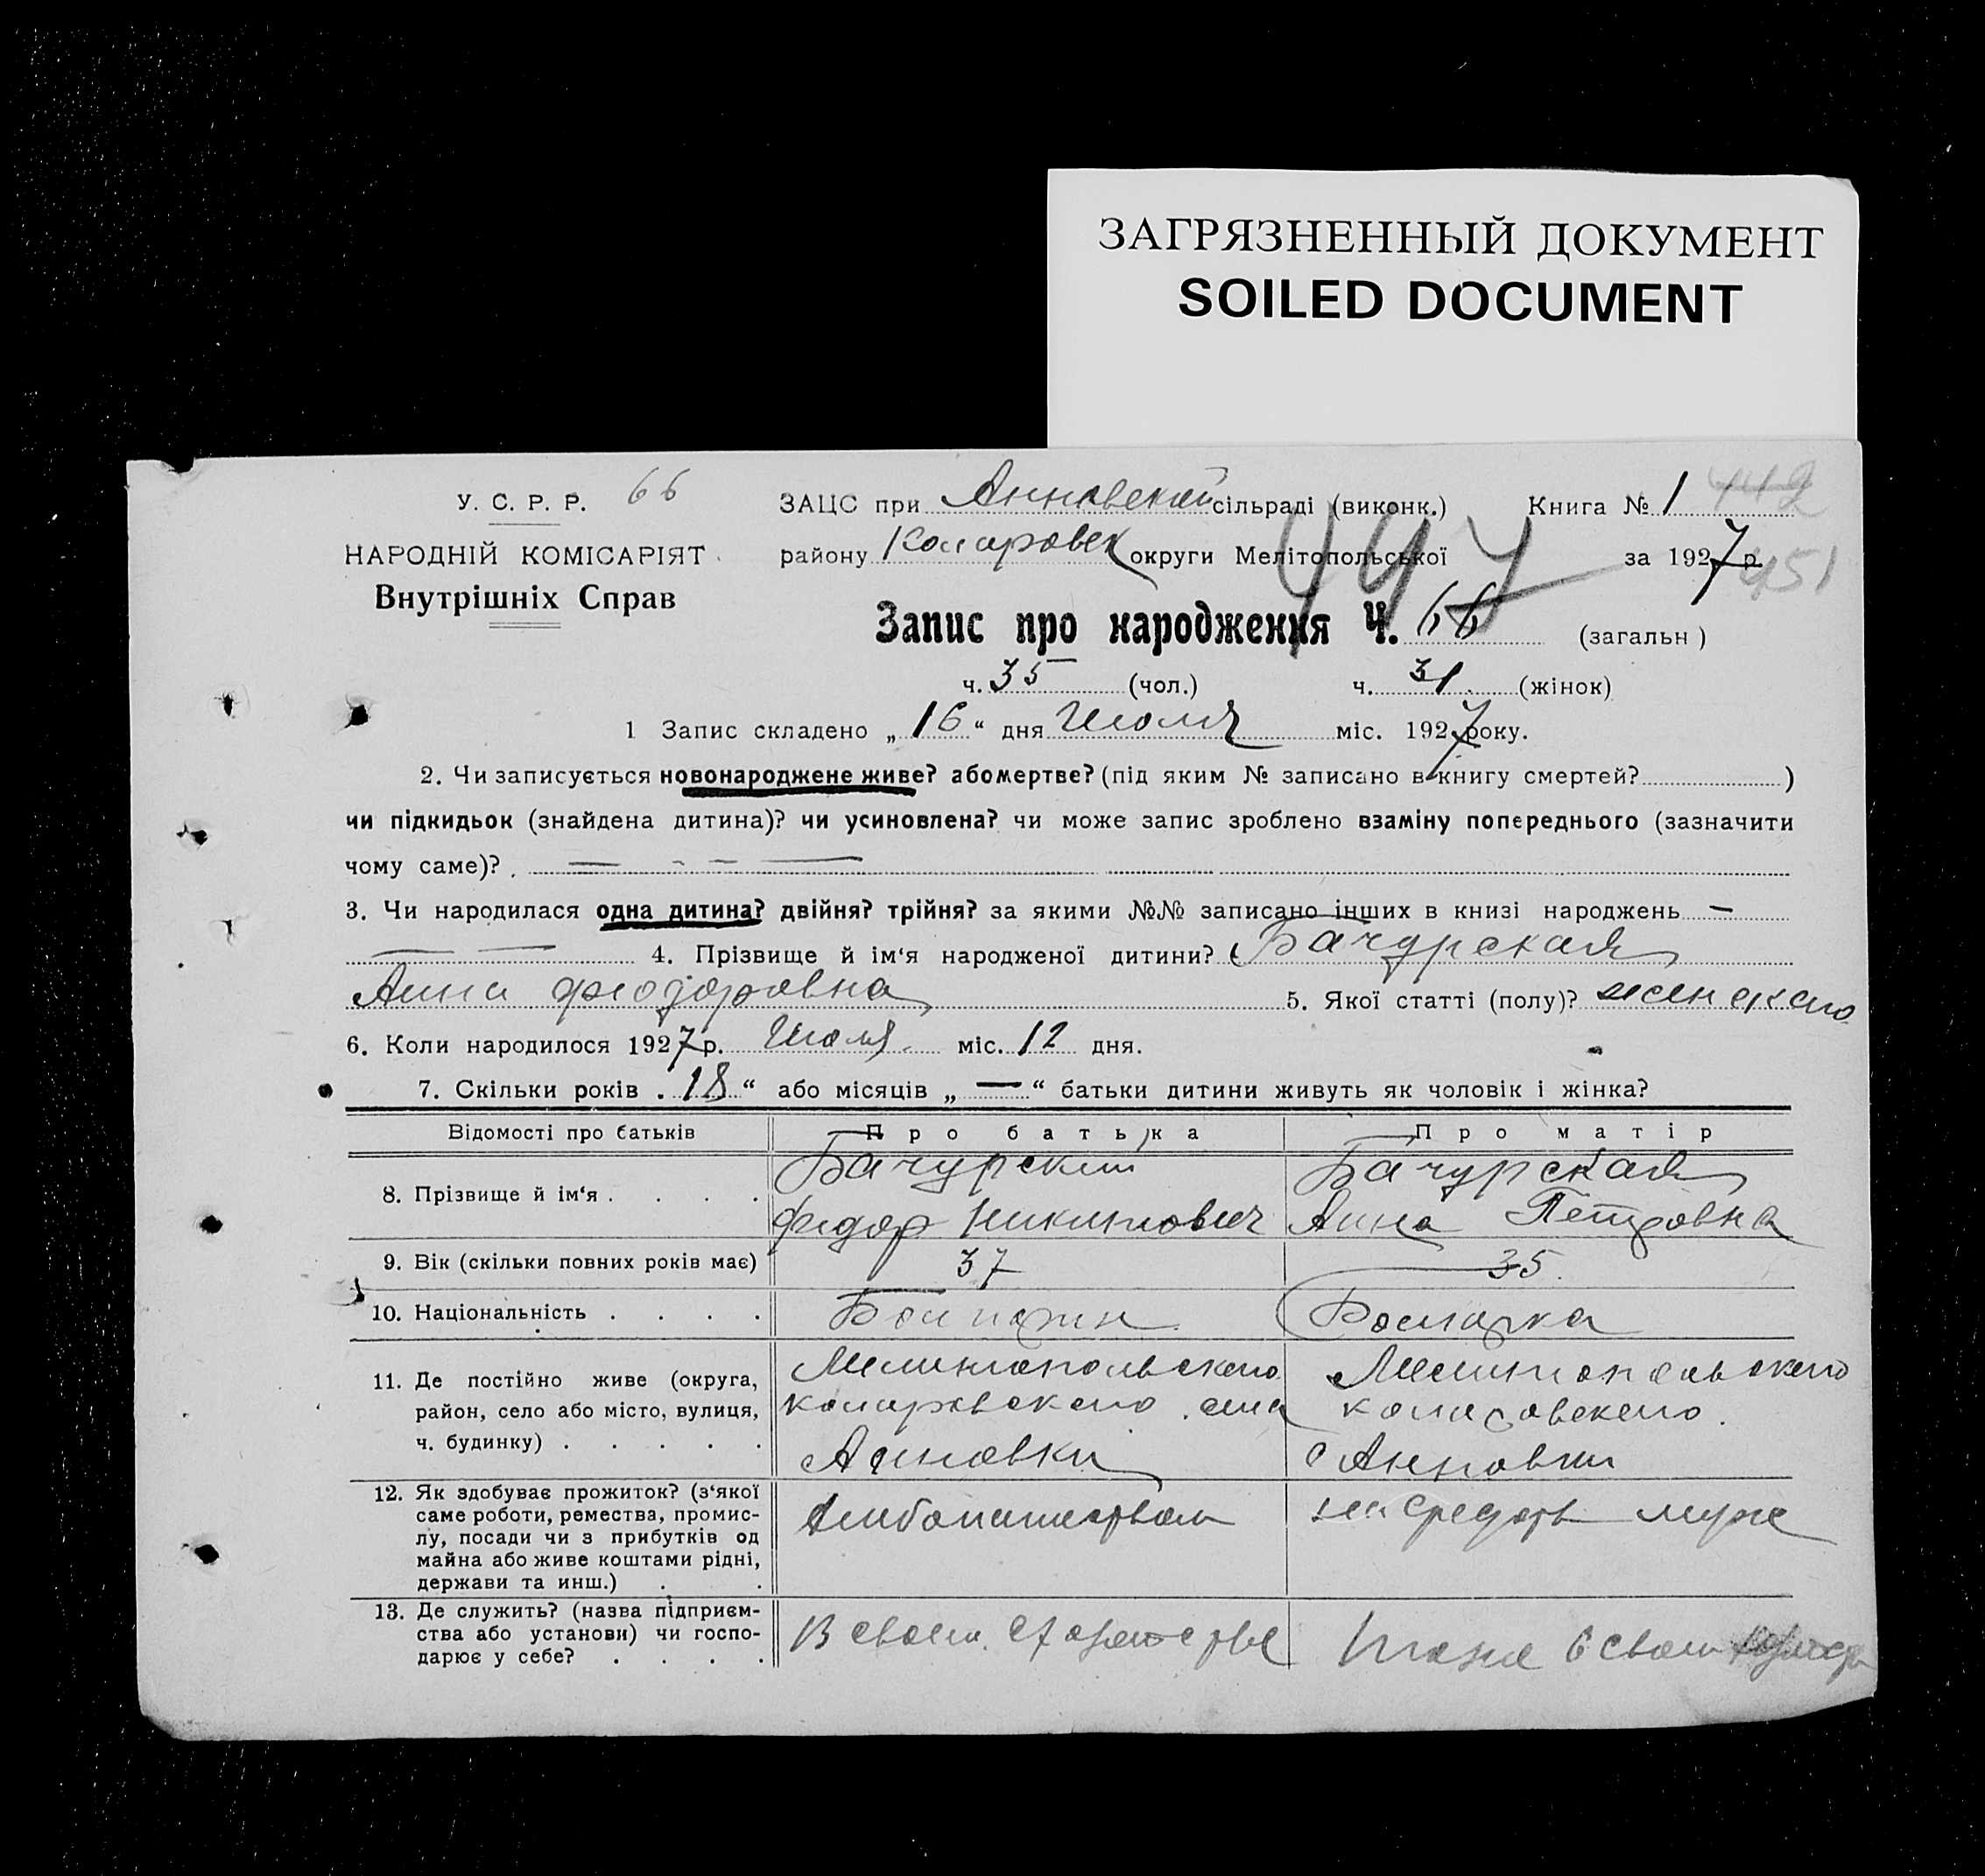 ЗАГРЯЗНЕННЫЙ ДОКУМЕНТ
SOILED DOCUMENT
У. С. Р. Р. 66
НАРОДНІЙ КОМІСАРІЯТ
Внутрішніх Справ
ЗАЦС при Анновской сільраді (виконк.) Книга № 1 442
району округи Мелітопольської за 1927 р. 451
447
Запис про народження Ч. 66 (загальн)
ч. 35 (чол.) ч. 31 (жінок)
1 Запис складено „16“ дня Июля міс. 1927 року.
2. Чи записується новонароджене живе? або мертве? (під яким № записано в книгу смертей? )
чи підкидьок (знайдена дитина)? чи усиновлена? чи може запис зроблено взаміну попереднього (зазначити
чому саме)? — - - —
3. Чи народилася одна дитина? двійня? трійня? за якими №№ записано інших в книзі народжень —
— — 4. Прізвище й ім‘я народженої дитини? Бачурская
Анна Фіодоровна 5. Якої статті (полу)? женскаго
6. Коли народилося 1927 р. Июля міс. 12 дня.
7. Скільки років „18“ або місяців „—“ батьки дитини живуть як чоловік і жінка?
Відомості про батьків Про батька Про матір
8. Прізвище й ім‘я . . . . Бачурский Бачурская
Фидор Никитович Анна Петровна
9. Вік (скільки повних років має) 37 35
10. Національність . . . . Болгарин Болгарка
11. Де постійно живе (округа, Мелитопольскаго Мелитопольскаго
район, село або місто, вулиця,
ч. будинку) . . . . . Анновки с Анновки
12. Як здобуває прожиток? (з‘якої
саме роботи, ремества, промис-
лу, посади чи з прибутків од
майна або живе коштами рідні,
держави та инш.) . . Хлибопашеством на средств мужа
13. Де служить? (назва підприєм-
ства або установи) чи госпо-
дарює у себе? . . . . В своем Тоже в своем